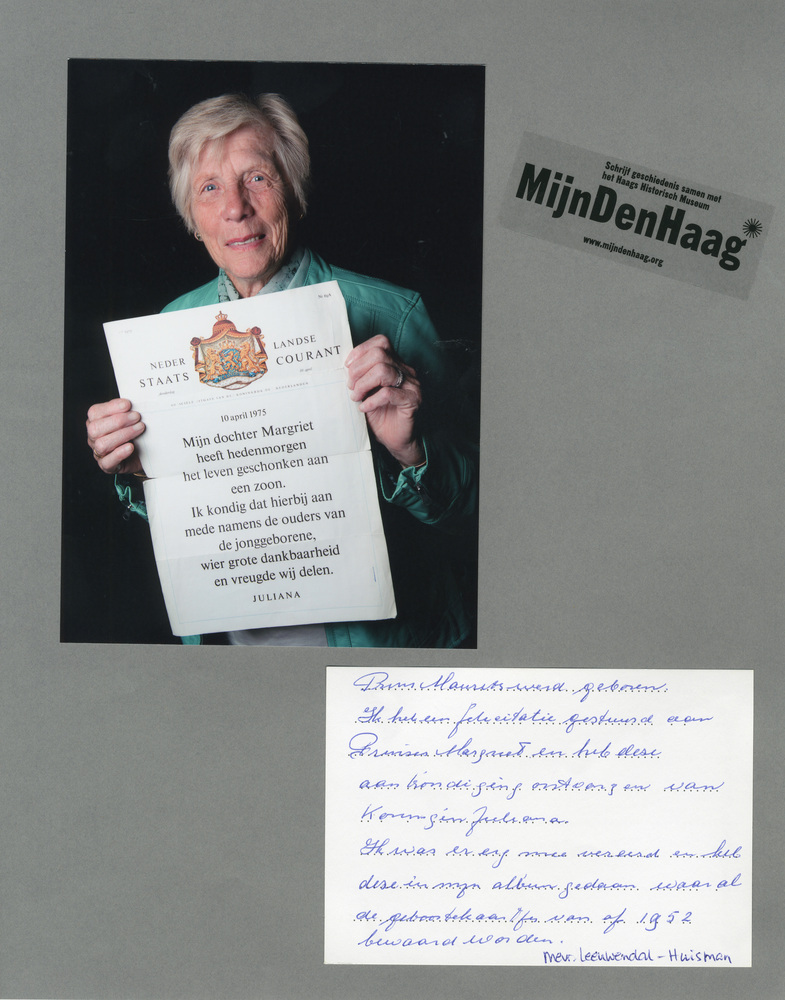 Schrijf geschiedenis samen met
het Haags Historisch Museum
MijnDenHaag
www.mijndenhaag.org
NEDER LANDSE
STAATS COURANT
10 april 1975
Mijn dochter Margriet
heeft hedenmorgen
het leven geschonken aan
een zoon.
Ik kondig dat hierbij aan
mede namens de ouders van
de jonggeborene,
wier grote dankbaarheid
en vreugde wij delen.
JULIANA
Prins Maurits werd geboren.
Ik heb een felicitatie gestuurd aan
Prinses Margriet en heb deze
aankondiging ontvangen van
Koningin Juliana.
Ik was er erg mee vereerd en heb
deze in mijn album gedaan waar al
de geboortekaartjes van af 1952
bewaard worden.
Mevr. Leeuwendal - Huisman